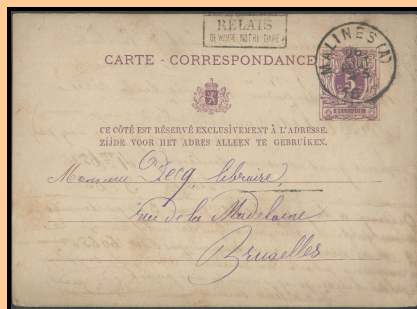 RELAIS
DE WAVRE-NOTRE-DAME
MALINES (A)
CARTE - CORRESPONDANCE
5
CE CÔTÉ EST RÉSERVÉ EXCLUSIVEMENT À L'ADRESSE.
ZIJDE VOOR HET ADRES ALLEEN TE GEBRUIKEN.
Monsieur Decq, libraire,
rue de la Madelaine
Bruxelles